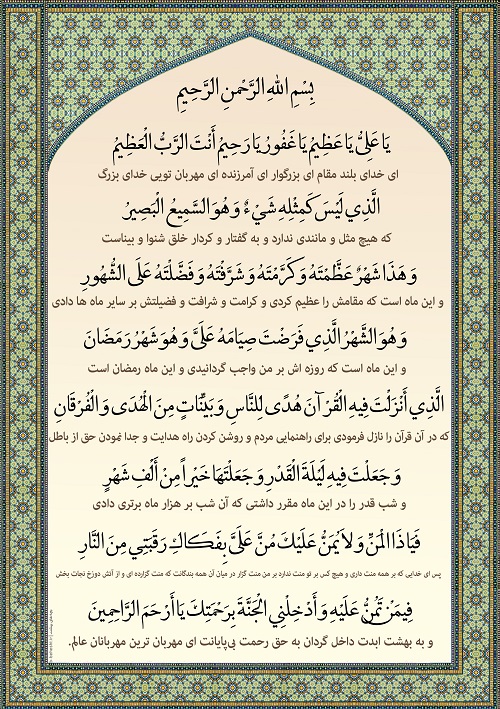 بِسْمِ اللهِ الرَّحْمنِ الرَّحِيمِ
يَا عَلِيُّ يَا عَظِيمُ يَا غَفُورُ يَا رَحِيمُ أَنْتَ الرَّبُّ الْعَظِيمُ
ای خدای بلند مقام ای بزرگوار ای آمرزنده ای مهربان تویی خدای بزرگ
الَّذِي لَيْسَ كَمِثْلِهِ شَيْءٌ وَهُوَ السَّمِيعُ الْبَصِيرُ
که هیچ مثل و مانندی ندارد و به گفتار و کردار خلق شنوا و بیناست
وَهَذَا شَهْرٌ عَظَّمْتَهُ وَكَرَّمْتَهُ وَشَرَّفْتَهُ وَفَضَّلْتَهُ عَلَى الشُّهُورِ
و این ماه است که مقامش را عظیم کردی و کرامت و شرافت و فضیلتش بر سایر ماه ها دادی
وَهُوَ الشَّهْرُ الَّذِي فَرَضْتَ صِيَامَهُ عَلَيَّ وَهُوَ شَهْرُ رَمَضَانَ
و این ماه است که روزه اش بر من واجب گردانیدی و این ماه رمضان است
الَّذِي أَنْزَلْتَ فِيهِ الْقُرْآنَ هُدًى لِلنَّاسِ وَبَيِّنَاتٍ مِنَ الْهُدَى وَالْفُرْقَانِ
که در آن قرآن را نازل فرمودی برای راهنمایی مردم و روشن کردن راه هدایت و جدا نمودن حق از باطل
وَجَعَلْتَ فِيهِ لَيْلَةَ الْقَدْرِ وَجَعَلْتَهَا خَيْراً مِنْ أَلْفِ شَهْرٍ
و شب قدر را در این ماه مقرر داشتی که آن شب بر هزار ماه برتری دادی
فَيَا ذَا الْمَنِّ وَلَا يُمَنُّ عَلَيْكَ مُنَّ عَلَيَّ بِفَكَاكِ رَقَبَتِي مِنَ النَّارِ
پس ای خدایی که بر همه منت داری و هیچ کس بر تو منت ندارد بر من منت گزار در میان آن همه بندگانت که منت گزارده ای و از آتش دوزخ نجات بخش
فِيمَنْ تَمُنُّ عَلَيْهِ وَأَدْخِلْنِي الْجَنَّةَ بِرَحْمَتِكَ يَا أَرْحَمَ الرَّاحِمِينَ
و به بهشت ابدت داخل گردان به حق رحمت بی‌پایانت ای مهربان ترین مهربانان عالم.